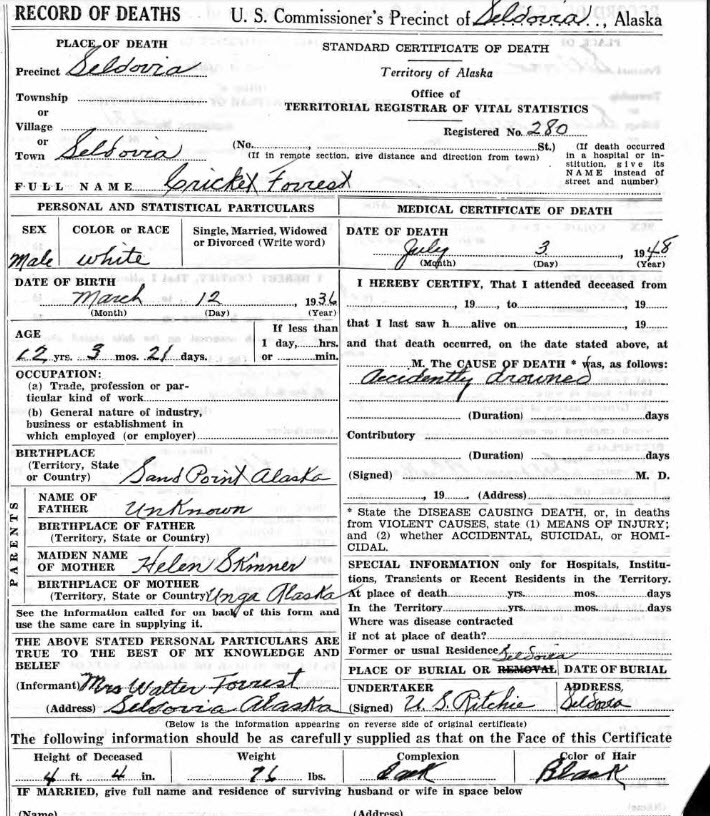 RECORD OF DEATHS U. S. Commissioner's Precinct of Seldovia, Alaska
PLACE OF DEATH
Precinct Seldovia
Township
or
Village
or
Town Seldovia
STANDARD CERTIFICATE OF DEATH
Territory of Alaska
Office of
TERRITORIAL REGISTRAR OF VITAL STATISTICS
Registered No. 280
(No. St.)
(If in remote section, give distance and direction from town)
(If death occurred
in a hospital or in-
stitution, give its
NAME instead of
street and number)
FULL NAME Cricket Forrest
PERSONAL AND STATISTICAL PARTICULARS
SEX
Male
COLOR or RACE
White
Single, Married, Widowed
or Divorced (Write word)
DATE OF BIRTH
March 12, 1936
(Month) (Day) (Year)
AGE
12 yrs. 3 mos. 21 days.
If less than
1 day, hrs.
or min.
OCCUPATION:
(a) Trade, profession or par-
ticular kind of work
(b) General nature of industry,
business or establishment in
which employed (or employer)
BIRTHPLACE
(Territory, State
or Country) Sand Point Alaska
PARENTS
NAME OF
FATHER Unknown
BIRTHPLACE OF FATHER
(Territory, State or Country)
MAIDEN NAME
OF MOTHER Helen Skinner
BIRTHPLACE OF MOTHER
(Territory, State or Country) Unga Alaska
See the information called for on back of this form and
use the same care in supplying it.
THE ABOVE STATED PERSONAL PARTICULARS ARE
TRUE TO THE BEST OF MY KNOWLEDGE AND
BELIEF
(Informant) Mrs Walter Forrest
(Address) Seldovia Alaska
MEDICAL CERTIFICATE OF DEATH
DATE OF DEATH
July 3 1948
(Month) (Day) (Year)
I HEREBY CERTIFY, That I attended deceased from
, 19 , to , 19
that I last saw h alive on , 19
and that death occurred, on the date stated above, at
M. The CAUSE OF DEATH * was, as follows:
Accidently drowned
(Duration) days
Contributory
(Duration) days
(Signed) M. D.
, 19 (Address)
* State the DISEASE CAUSING DEATH, or, in deaths
from VIOLENT CAUSES, state (1) MEANS OF INJURY;
and (2) whether ACCIDENTAL, SUICIDAL, or HOMI-
CIDAL.
SPECIAL INFORMATION only for Hospitals, Institu-
tions, Transients or Recent Residents in the Territory.
At place of death yrs. mos. days
In the Territory yrs. mos. days
Where was disease contracted
if not at place of death?
Former or usual Residence Seldovia
PLACE OF BURIAL OR REMOVAL
DATE OF BURIAL
UNDERTAKER
(Signed) U. S. Ritchie
ADDRESS,
Seldovia
(Below is the information appearing on reverse side of original certificate)
The following information should be as carefully supplied as that on the Face of this Certificate
Height of Deceased Weight Complexion Color of Hair
4 ft. 4 in. 76 lbs. Dark Black
IF MARRIED, give full name and residence of surviving husband or wife in space below
(Name) (Address)